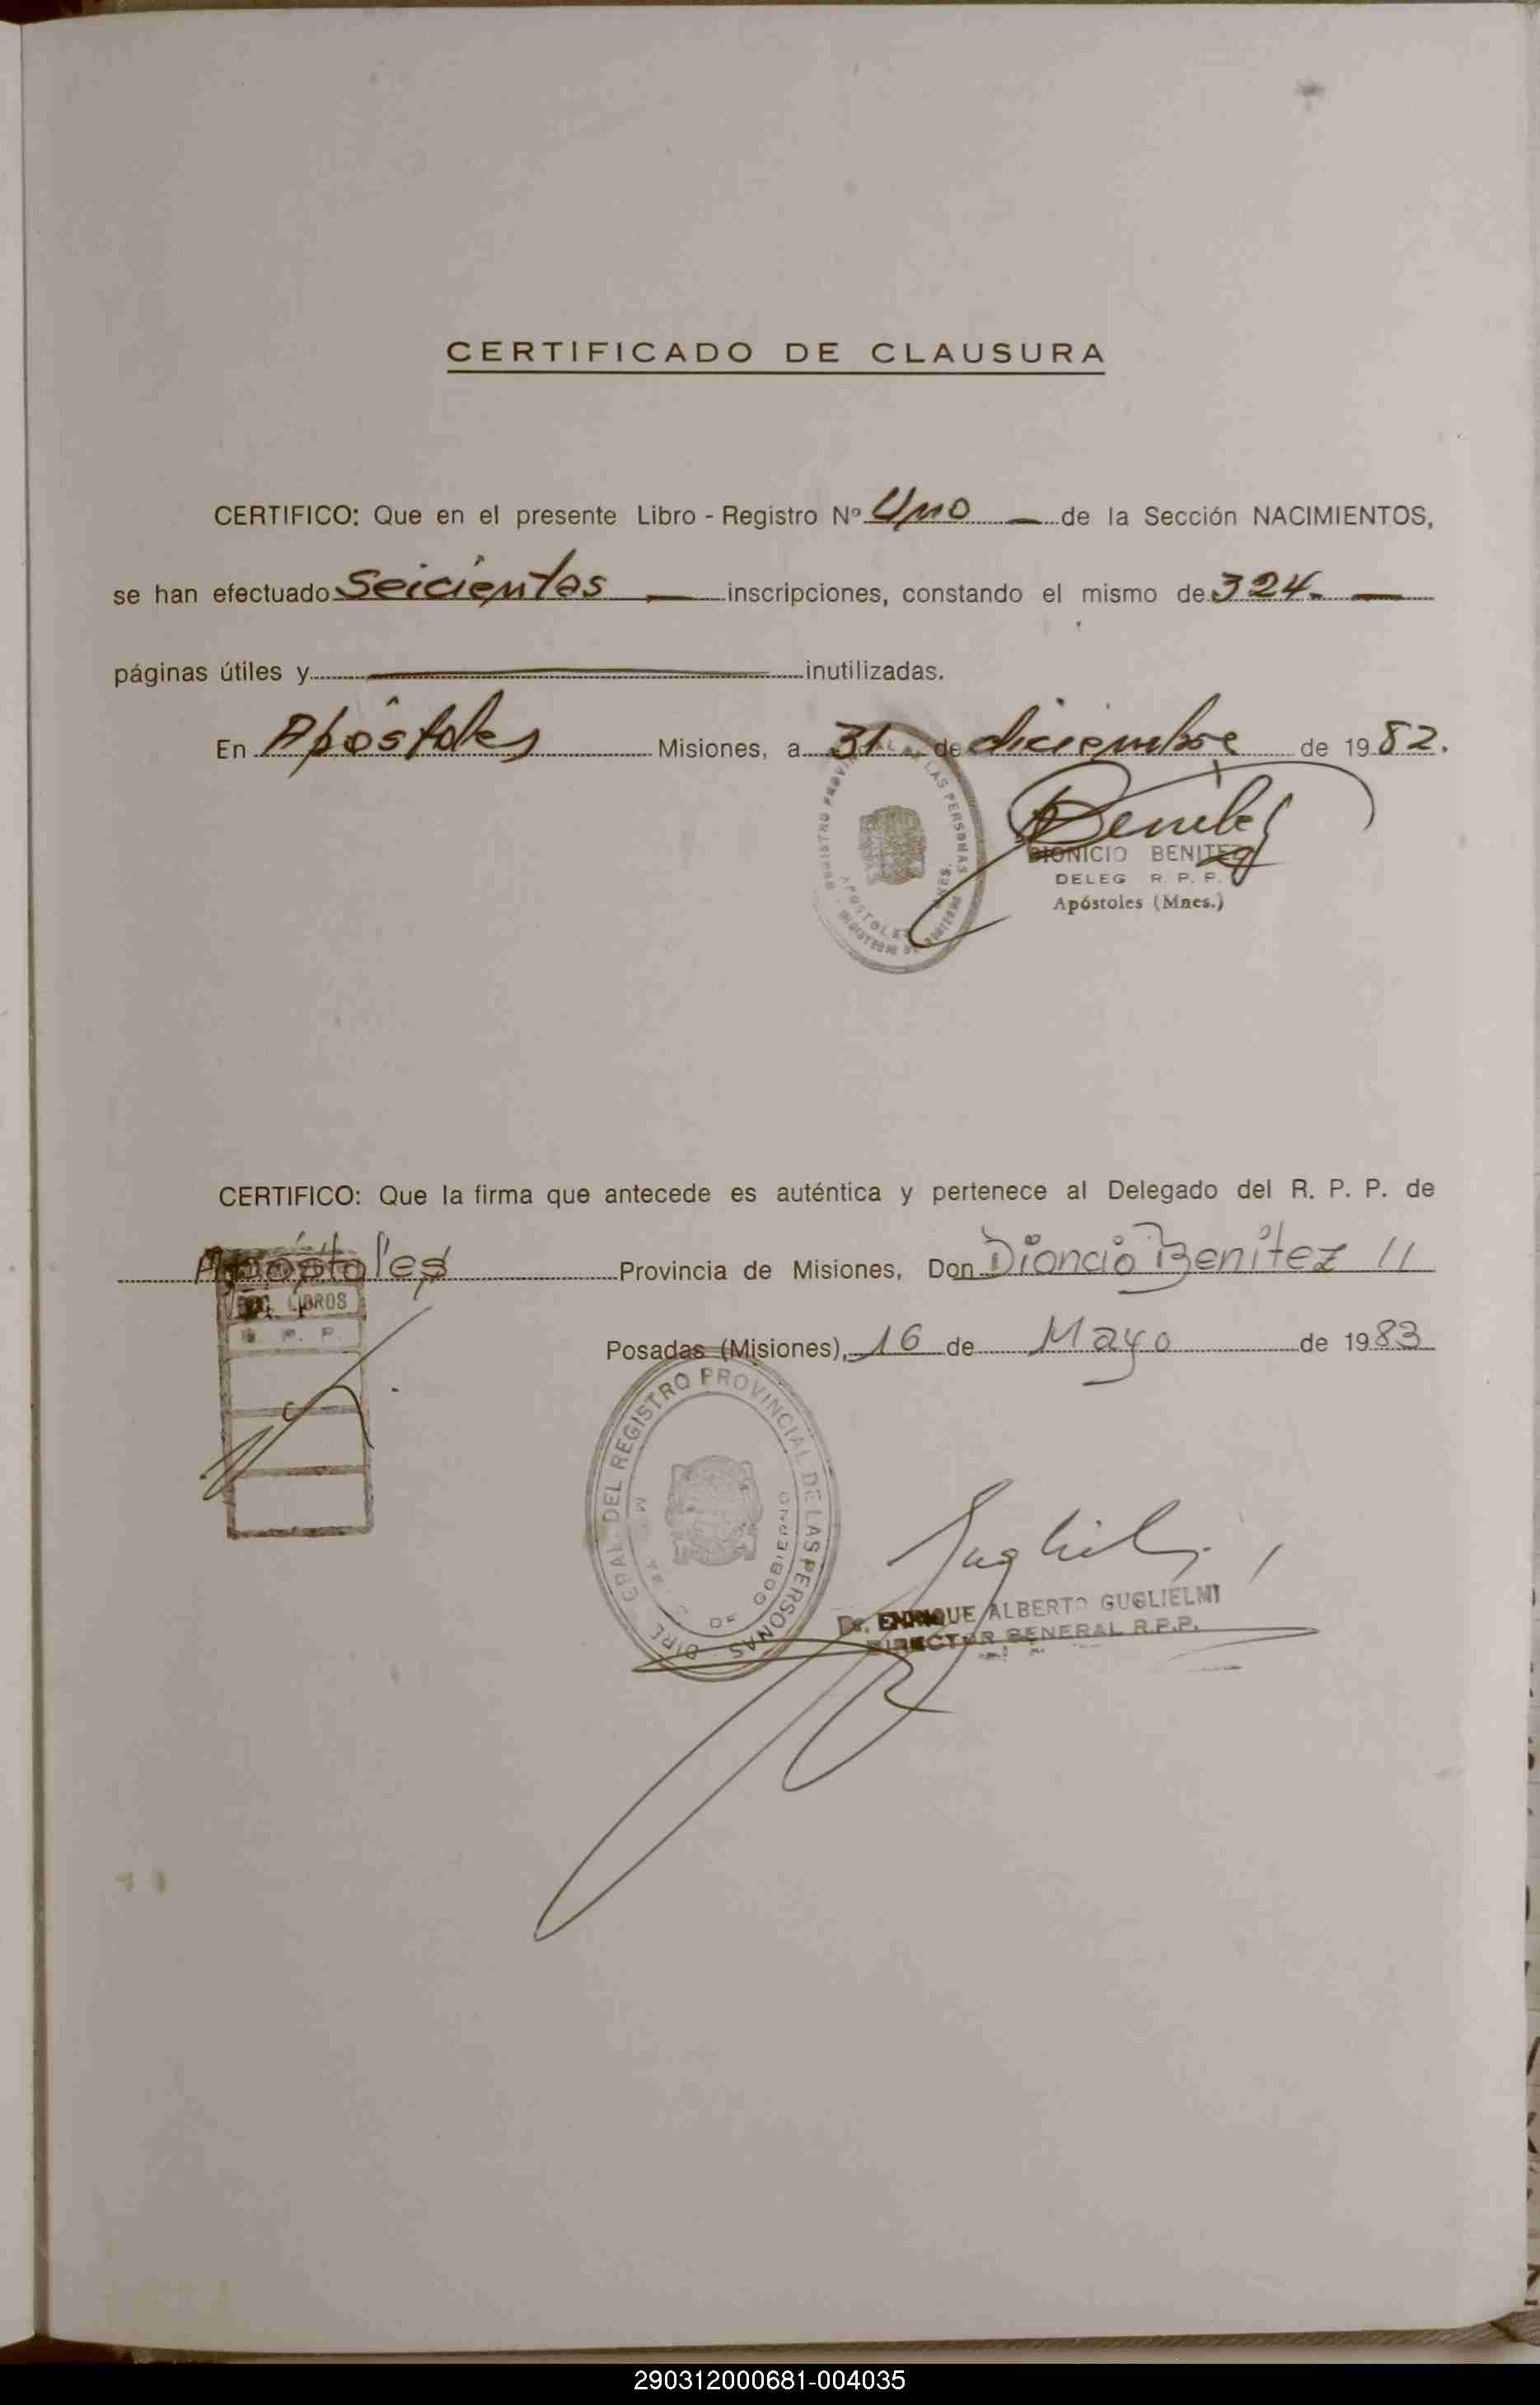 CERTIFICADO DE CLAUSURA
CERTIFICO: Que en el presente Libro - Registro Nº Uno — de la Sección NACIMIENTOS,
se han efectuado Seicientos — inscripciones, constando el mismo de 324. —
páginas útiles y — inutilizadas.
En Apóstoles Misiones, a 31 de diciembre de 1982.
REGISTRO PROVINCIAL DE LAS PERSONAS
APOSTOLES
MINISTERIO DE GOBIERNO
Benitez
DIONICIO BENITEZ
DELEG R. P. P.
Apóstoles (Mnes.)
CERTIFICO: Que la firma que antecede es auténtica y pertenece al Delegado del R. P. P. de
Apóstoles Provincia de Misiones, Don Dioncio Benítez //
LIBROS
R. P. P.
Posadas (Misiones), 16 de Mayo de 1983
DIRE GRAL. DEL REGISTRO PROVINCIAL DE LAS PERSONAS
DE GOBIERNO
Dr. ENRIQUE ALBERTO GUGLIELMI
DIRECTOR GENERAL R.P.P.
290312000681-004035